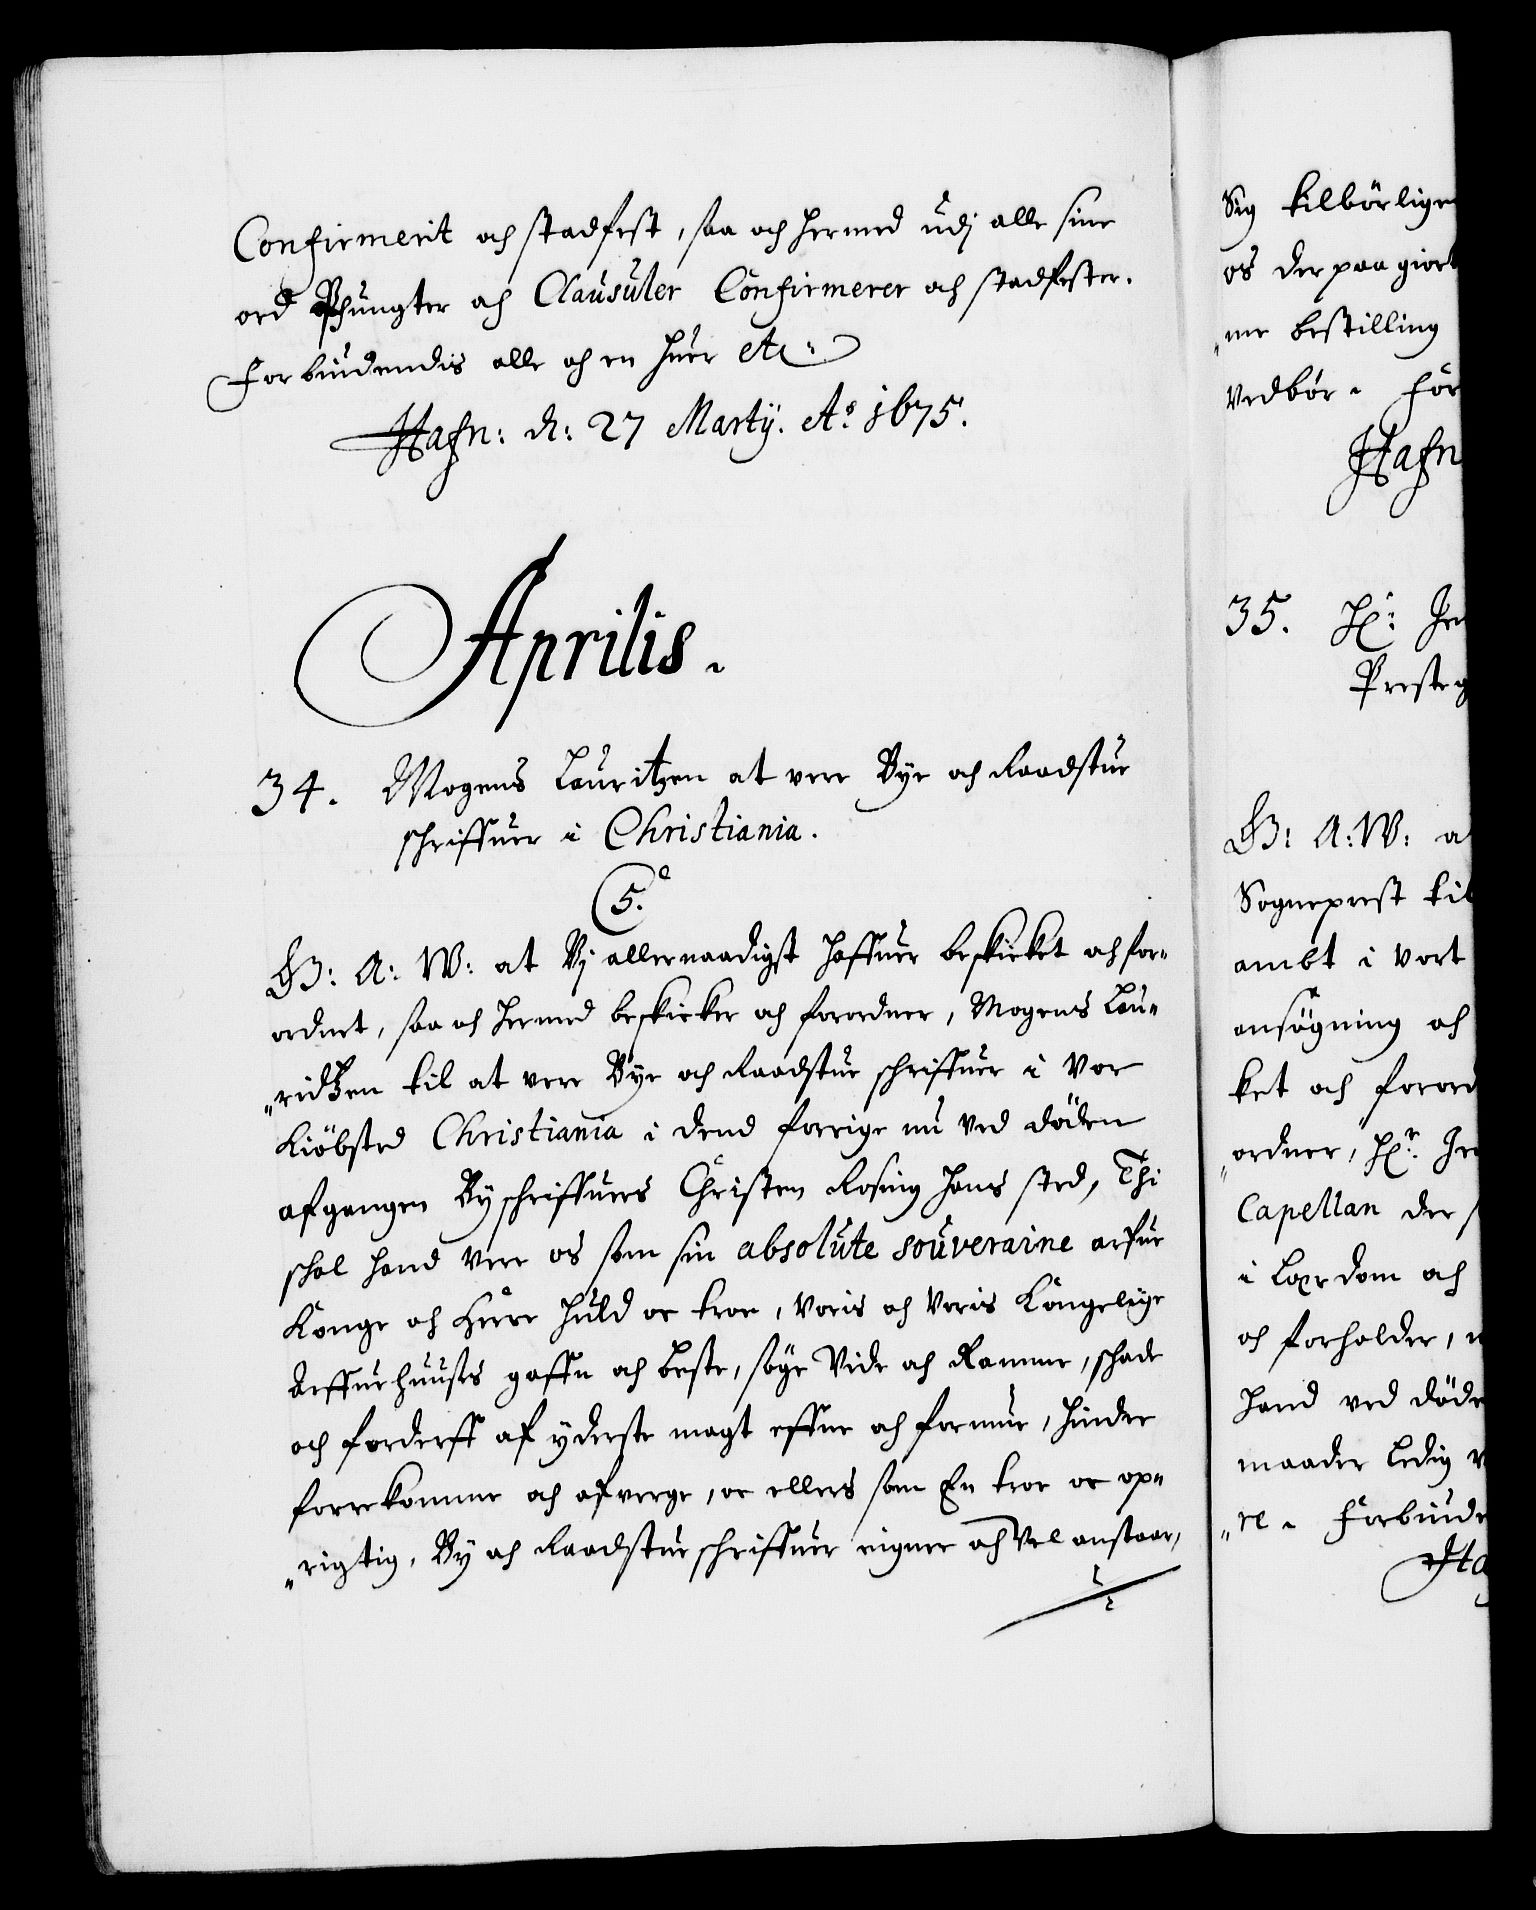 Confirmerit och stadfest, saa och hermed udj alle sine
ord Phungter och Clausuler Confirmerer och stadfester.
Forbiudendis alle och en huer etc:
Hafn: d: 27 Martij. Ao 1675.
Aprilis.
34. Mogens Lauritzen at vere Bye och Raadstue
schriffuer i Christiania.
5.
G: A: W: at Vj allernaadigst haffuer beskicket och for-
ordnet, saa och hermed beskicker och forordner, Mogens Lau-
ridtzen til at vere Bye och Raadstue schriffuer i Vor
Kiöbsted Christiania i dend forrige nu ved döden
afgangen Byschriffuers Christen Rosing hans sted, Thi
schal hand vere os som sin absolute souveraine arfue
Konge och Herre huld oc troe, Voris och Voris Kongelige
Arffuehuuses gaffn och beste, söge Vide och Ramme, schade
och forderff af yderste magt effne och formue, hinder
forrekomme och afverge, oc ellers som En troe oc op-
rigtig, By och Raadstueschriffuer eigner och Vel anstaar,
Sig tilbörlige
os derpaa giort
me bestilling
Vedbör. For
Hafn
35. Hr: Je
Presteg
G: A: W: a
Sogneprest til
ambt i Vort
ansögning och
ket och forord
ordner, Hr. Je
Capellan der s
i Lærdom och
och forholder,
hand ved döde
maader ledig
re. Forbiude
Ha